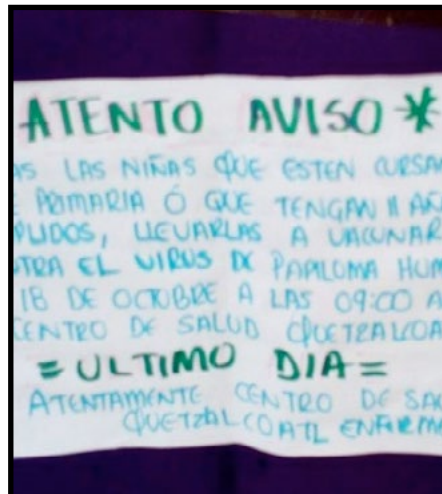 ATENTO AVISO *
AS LAS NIÑAS QUE ESTEN CURSA
E PRIMARIA Ó QUE TENGAN 11 AÑ
PLIDOS, LLEVARLAS A VACUNAR
TRA EL VIRUS DE PAPILOMA HUM
18 DE OCTUBRE A LAS 09:00 A
CENTRO DE SALUD QUETZALCOA
= ULTIMO DIA =
ATENTAMENTE CENTRO DE SAL
QUETZALCOATL ENFERME